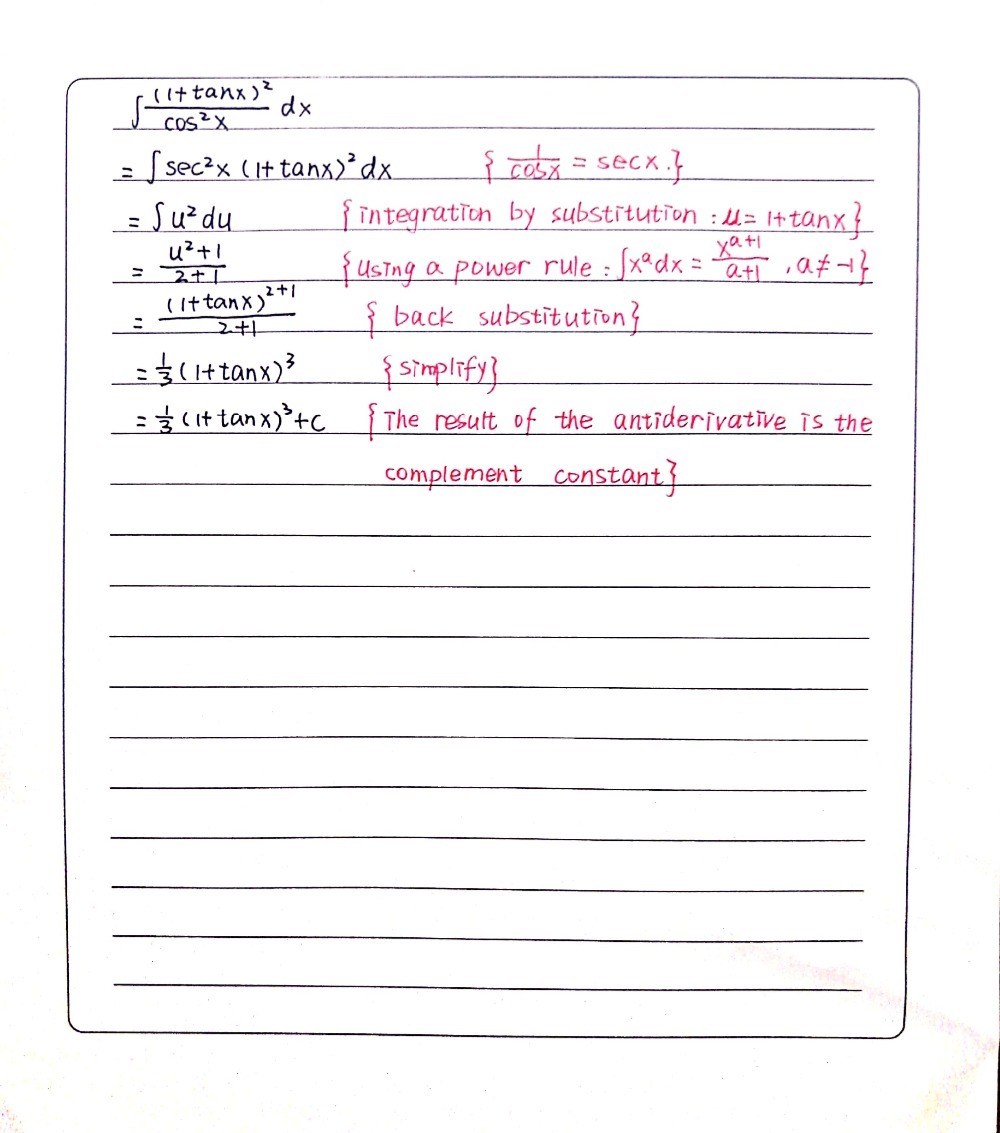 ∫ (1+tanx)² / cos²x dx
= ∫ sec²x (1+tanx)² dx { 1/cosx = secx.}
= ∫ u² du {integration by substitution : u = 1+tanx}
= u²+1 / 2+1 {Using a power rule : ∫xᵃdx = xᵃ⁺¹ / a+1 , a ≠ -1}
= (1+tanx)²⁺¹ / 2+1 { back substitution}
= 1/3 (1+tanx)³ {simplify}
= 1/3 (1+tanx)³+C {The result of the antiderivative is the
complement constant}